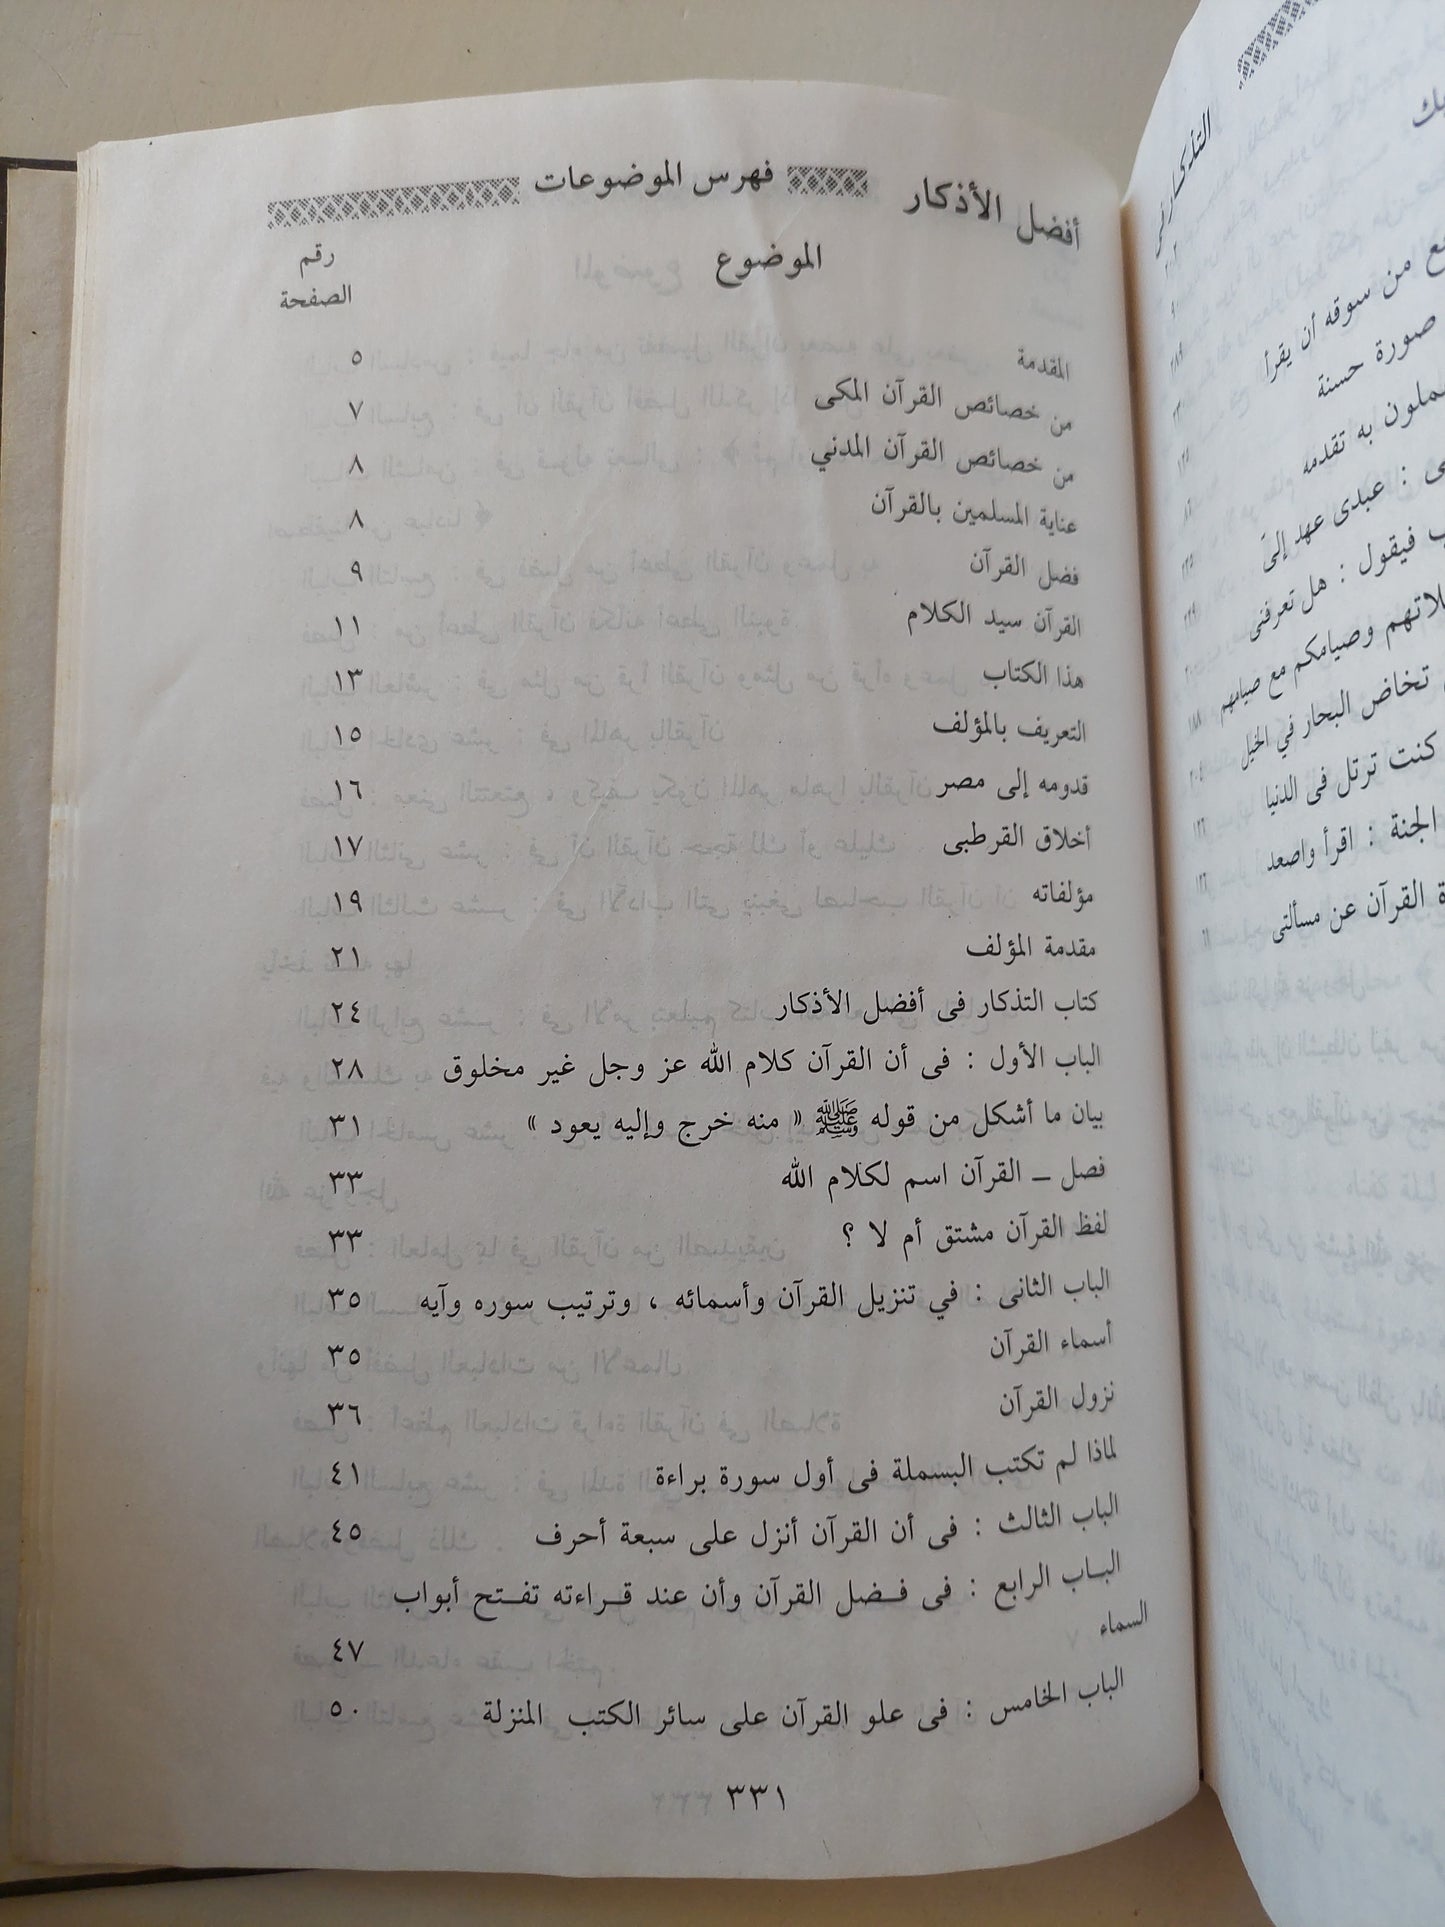 أفضل الأذكار
فهرس الموضوعات
الموضوع
رقم
الصفحة
المقدمة ٥
من خصائص القرآن المكى ٧
من خصائص القرآن المدني ٨
عناية المسلمين بالقرآن ٨
فضل القرآن ٩
القرآن سيد الكلام ١١
هذا الكتاب ١٣
التعريف بالمؤلف ١٥
قدومه إلى مصر ١٦
أخلاق القرطبى ١٧
مؤلفاته ١٩
مقدمة المؤلف ٢١
كتاب التذكار فى أفضل الأذكار ٢٤
الباب الأول : فى أن القرآن كلام الله عز وجل غير مخلوق ٢٨
بيان ما أشكل من قوله ﷺ « منه خرج وإليه يعود » ٣١
فصل ــ القرآن اسم لكلام الله ٣٣
لفظ القرآن مشتق أم لا ؟ ٣٣
الباب الثانى : في تنزيل القرآن وأسمائه ، وترتيب سوره وآيه ٣٥
أسماء القرآن ٣٥
نزول القرآن ٣٦
لماذا لم تكتب البسملة فى أول سورة براءة ٤١
الباب الثالث : فى أن القرآن أنزل على سبعة أحرف ٤٥
البـاب الرابع : فى فـضل القرآن وأن عند قـراءته تفـتح أبواب
السماء ٤٧
الباب الخامس : فى علو القرآن على سائر الكتب المنزلة ٥٠
٣٣١
التذكار فى
من سوقه أن يقرأ
صورة حسنة
به تقدمه
: عبدى عهد إلىّ
فيقول : هل تعرفنى
وصيامكم مع صيامهم
تخاض البحار في الخيل
كنت ترتل فى الدنيا
الجنة : اقرأ واصعد
القرآن عن مسألتى